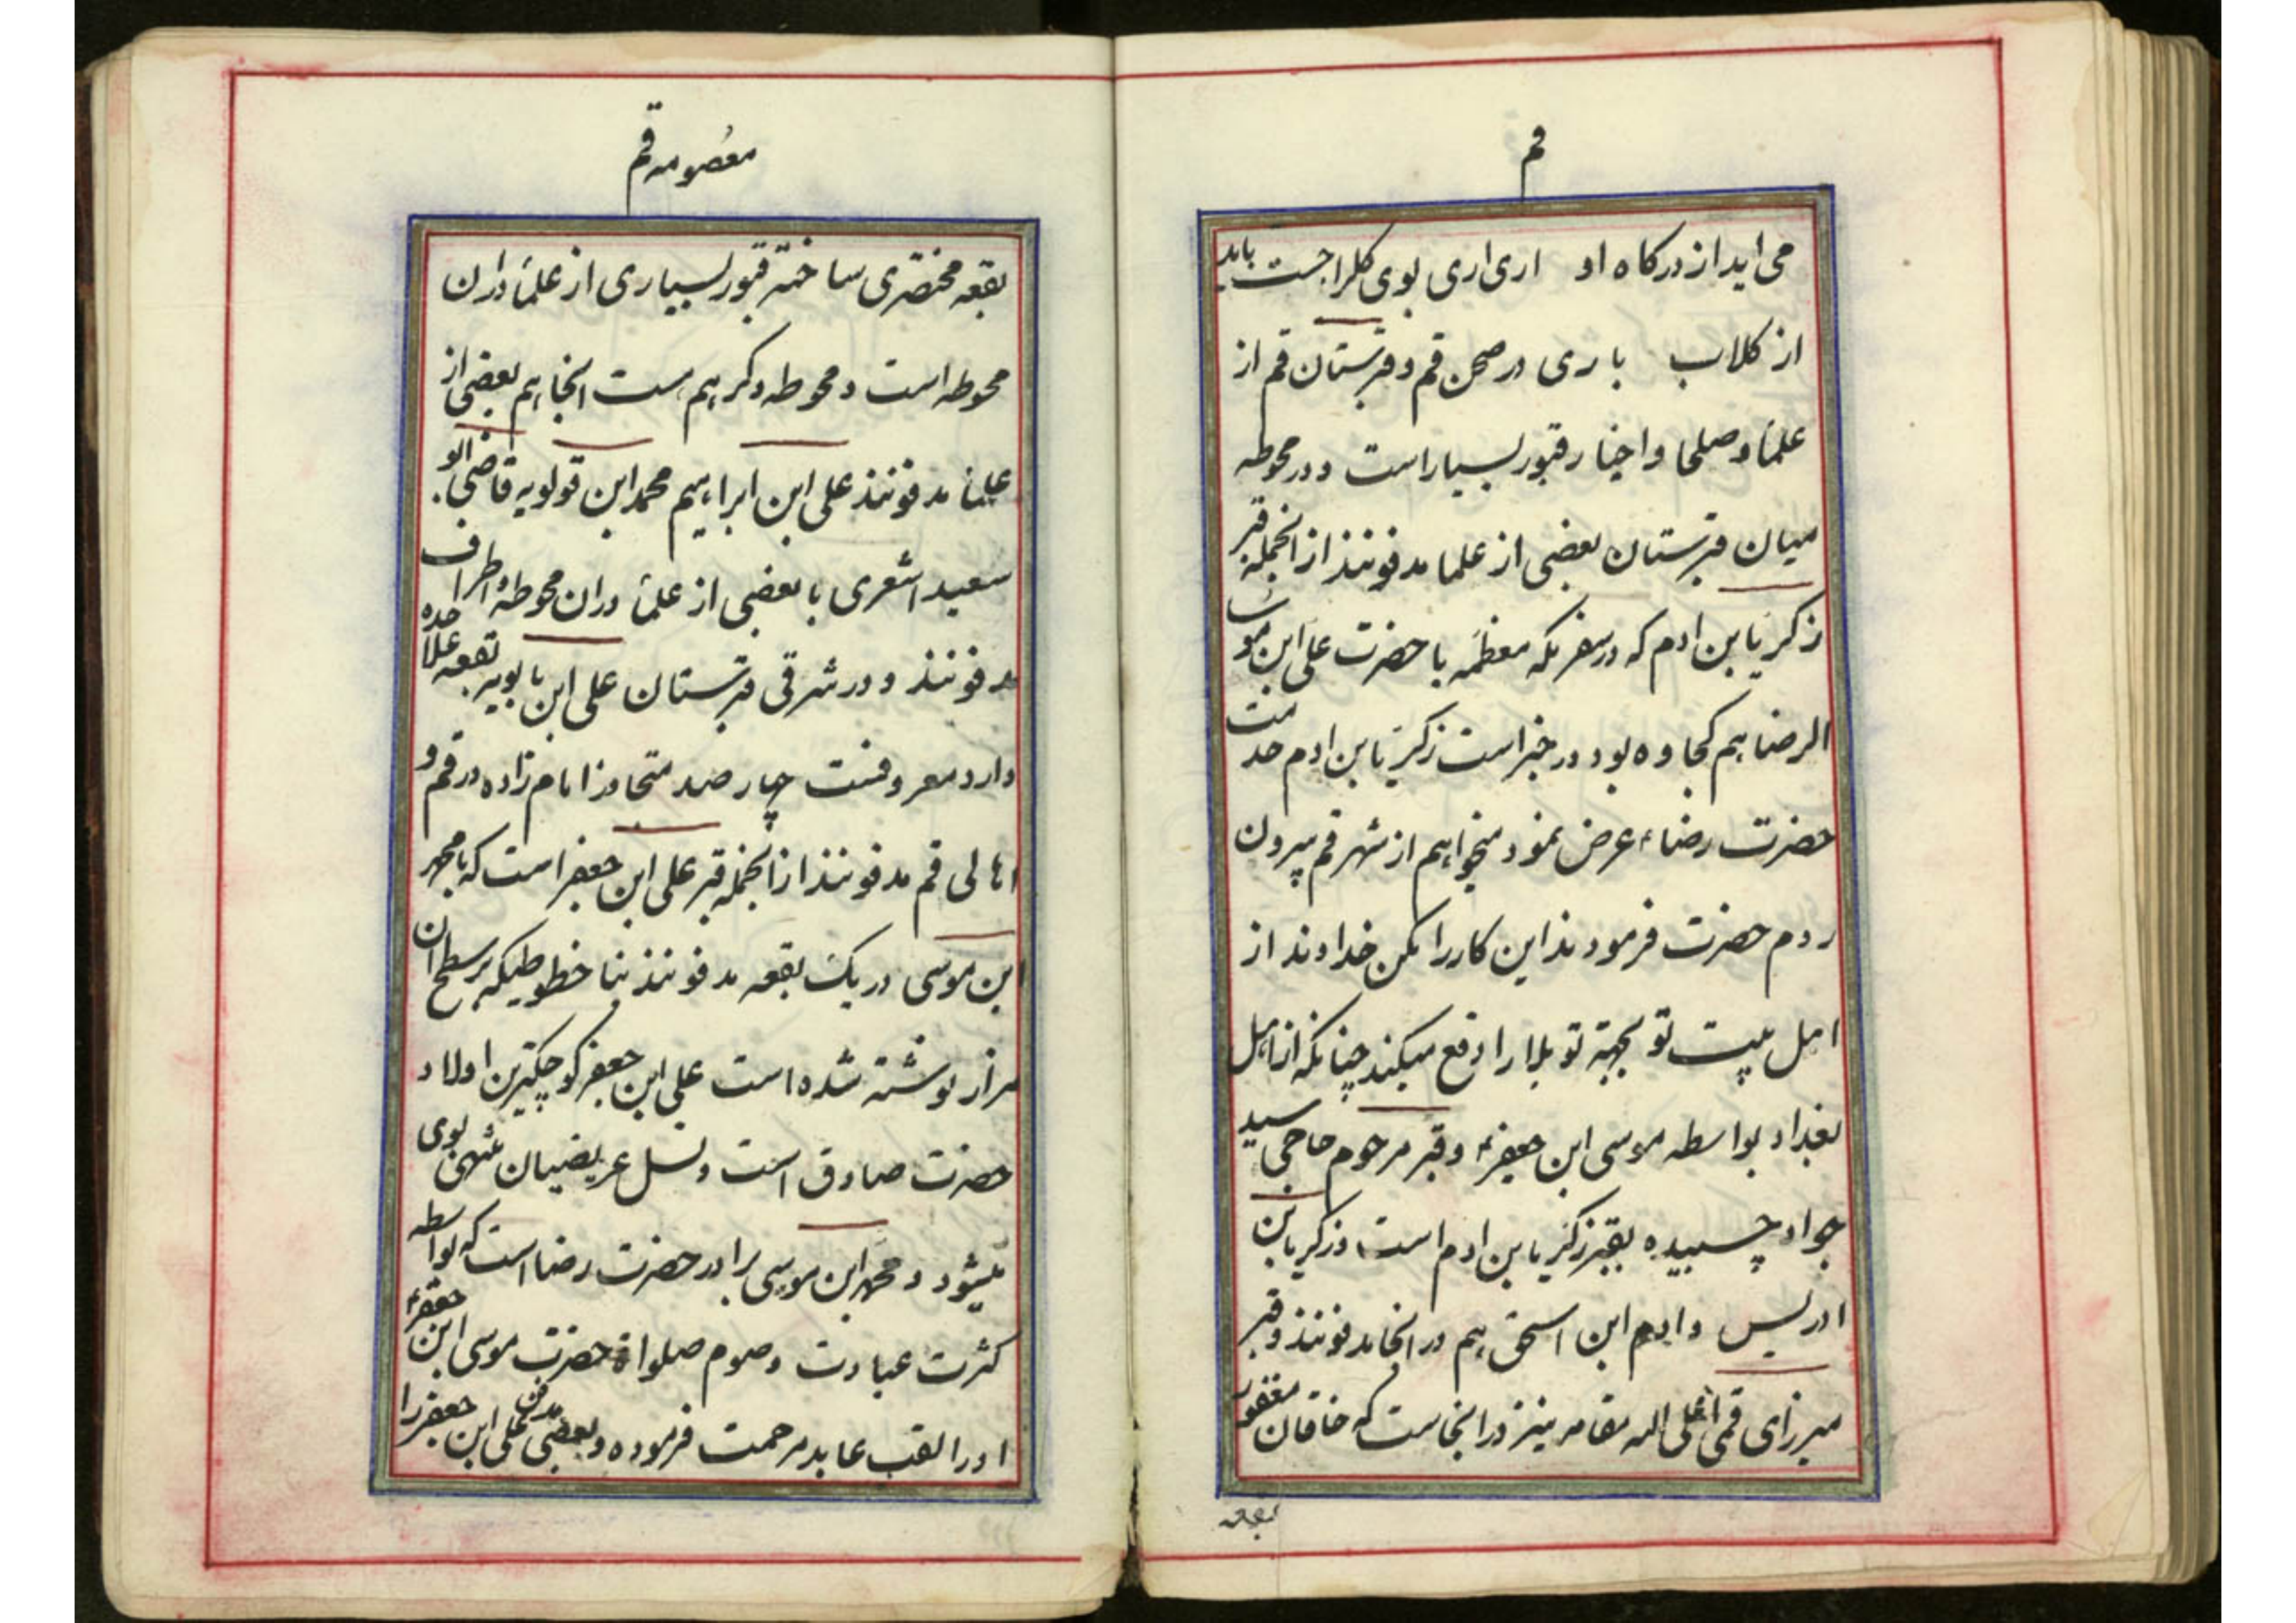 قم
می اید از درکاه او اری اری بوی کلرا جست باید
از کلاب باری در صحن قم و قبرستان قم از
علما و صلحا و اخیار قبور بسیار است و در محوطه
میان قبرستان بعضی از علما مدفونند از انجمله قبر
زکریا بن ادم که در سفر مکه معظمه با حضرت علی ابن موسی
الرضا هم کجاوه بود و در خبر است زکریا بن ادم خدمت
حضرت رضاء عرض نمود میخواهم از شهر قم بیرون
روم حضرت فرمودند این کار را مکن خداوند از
اهل بیت تو بجهة تو بلا را دفع میکند چنانکه از اهل
بغداد بواسطه موسی ابن جعفرء و قبر مرحوم حاجی سید
جواد چسبیده بقبر زکریا بن ادم است و زکریا بن
ادریس و ادم ابن اسحق هم در انجا مدفونند و قبر
میرزای قمی اعلی الله مقامه نیز در اینجاست که خاقان مغفور
بقعه
معصومه قم
بقعه مختصری ساخته قبور بسیاری از علما در ان
محوطه است و محوطه دکر هم هست انجا هم بعضی از
علما مدفونند علی ابن ابراهیم محمد ابن قولویه قاضی ابو
سعید اشعری با بعضی از علما در ان محوطه و اطراف
مدفونند و در شرقی قبرستان علی ابن بابویه بقعه علاحده
دارد معروفست چهار صد متجاوز امام زاده در قم و
اهالی قم مدفونند از انجمله قبر علی ابن جعفر است که با محمد
ابن موسی در یک بقعه مدفونند بنا خطوطیکه بر سطح ان
مزار نوشته شده است علی ابن جعفر کوچکترین اولاد
حضرت صادق است و نسل عریضیان منتهی بوی
میشود و محمد ابن موسی برادر حضرت رضا است که بواسطه
کثرت عبادت و صوم صلواة حضرت موسی ابن جعفرء
او را لقب عابد مرحمت فرموده و بعضی مدفن علی ابن جعفر را